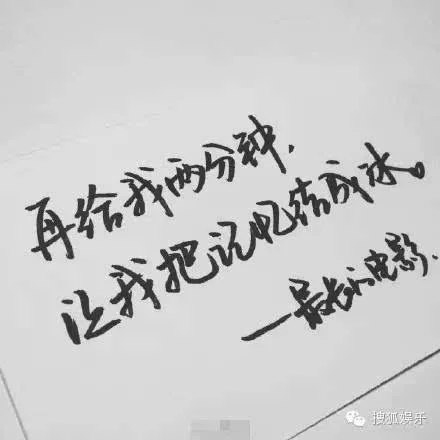 再给我两分钟,
让我把记忆结成冰。
—最长的电影.
搜狐娱乐